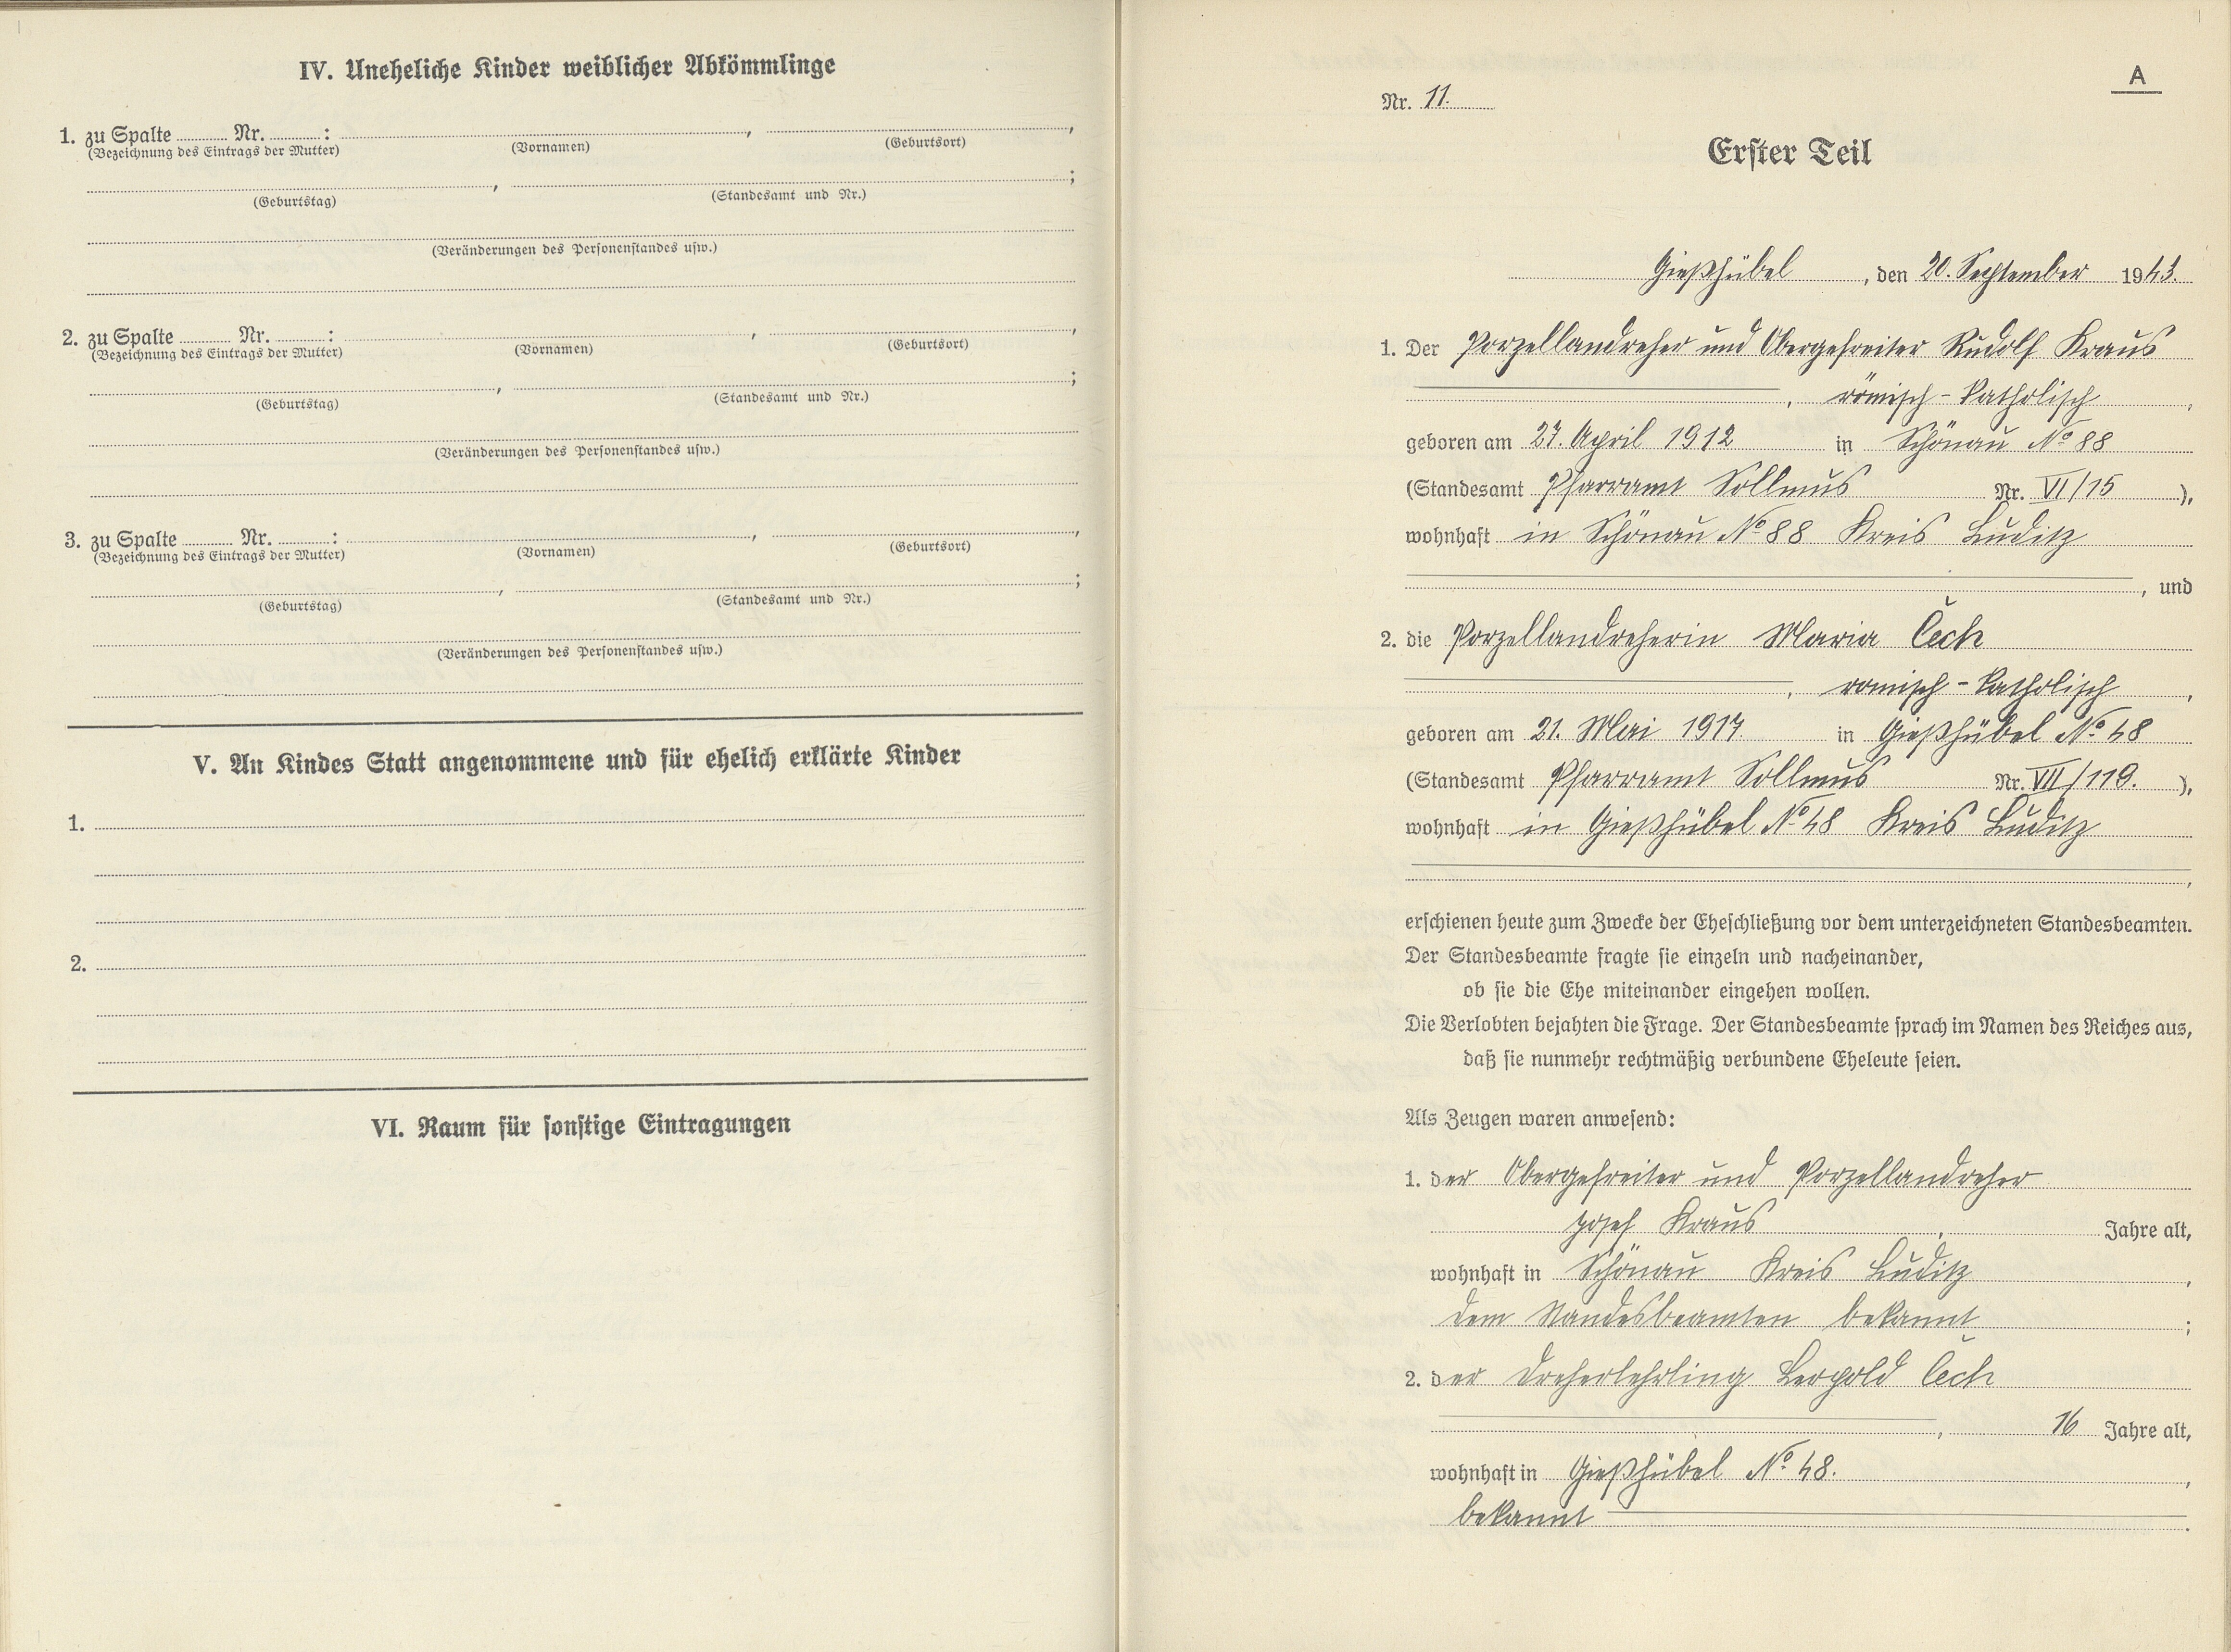 IV. Uneheliche Kinder weiblicher Abkömmlinge
1. zu Spalte ........ Nr. ........ : ........ , ........ ,
(Bezeichnung des Eintrags der Mutter) (Vornamen) (Geburtsort)
........ , ........ ;
(Geburtstag) (Standesamt und Nr.)
(Veränderungen des Personenstandes usw.)
2. zu Spalte ........ Nr. ........ : ........ , ........ ,
(Bezeichnung des Eintrags der Mutter) (Vornamen) (Geburtsort)
........ , ........ ;
(Geburtstag) (Standesamt und Nr.)
(Veränderungen des Personenstandes usw.)
3. zu Spalte ........ Nr. ........ : ........ , ........ ,
(Bezeichnung des Eintrags der Mutter) (Vornamen) (Geburtsort)
........ , ........ ;
(Geburtstag) (Standesamt und Nr.)
(Veränderungen des Personenstandes usw.)
V. An Kindes Statt angenommene und für ehelich erklärte Kinder
1.
2.
VI. Raum für sonstige Eintragungen
A
Nr. 11.
Erster Teil
Gießhübel, den 20. September 1943.
1. Der Porzellandreher und Obergefreiter Rudolf Kraus
, römisch-katholisch,
geboren am 27. April 1912 in Schönau No 88
(Standesamt Pfarramt Sollmus Nr. VI/15),
wohnhaft in Schönau No 88 Kreis Luditz
, und
2. die Porzellandreherin Maria Čech
, römisch-katholisch,
geboren am 21. Mai 1917 in Gießhübel No 48
(Standesamt Pfarramt Sollmus Nr. VII/119.),
wohnhaft in Gießhübel No 48 Kreis Luditz
,
erschienen heute zum Zwecke der Eheschließung vor dem unterzeichneten Standesbeamten.
Der Standesbeamte fragte sie einzeln und nacheinander,
ob sie die Ehe miteinander eingehen wollen.
Die Verlobten bejahten die Frage. Der Standesbeamte sprach im Namen des Reiches aus,
daß sie nunmehr rechtmäßig verbundene Eheleute seien.
Als Zeugen waren anwesend:
1. der Obergefreiter und Porzellandreher
Josef Kraus, Jahre alt,
wohnhaft in Schönau Kreis Luditz,
dem Standesbeamten bekannt;
2. der Dreherlehrling Leopold Čech
, 16 Jahre alt,
wohnhaft in Gießhübel No 48.,
bekannt.